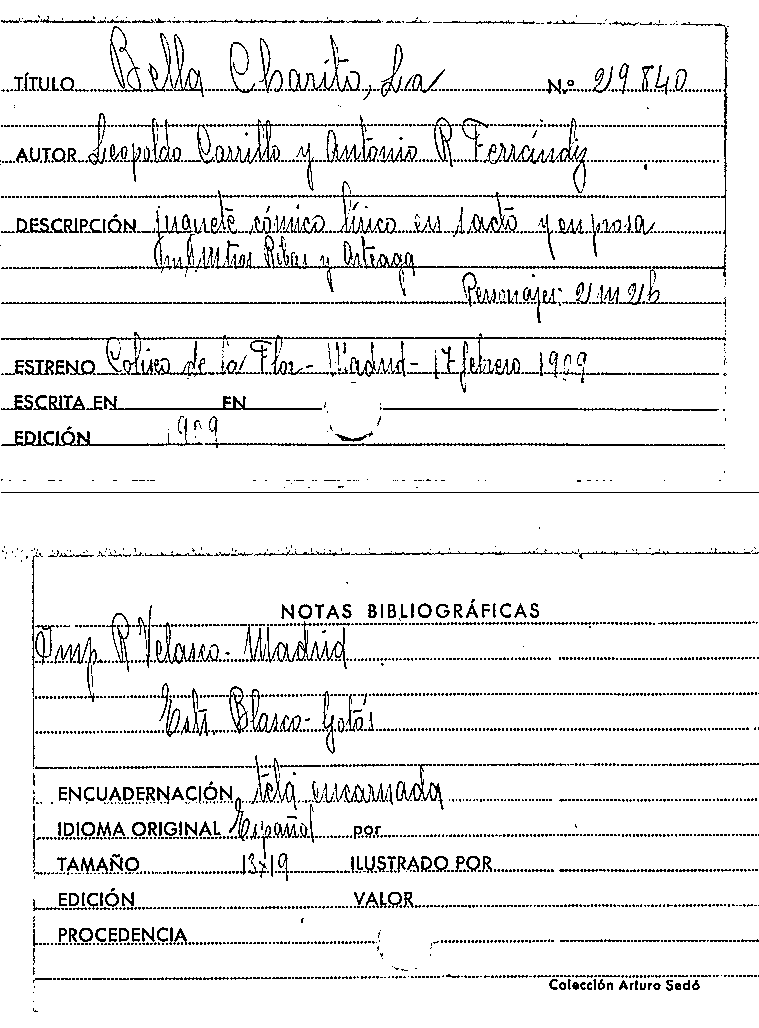 TÍTULO Bella Charito, La N.º 219840
AUTOR Leopoldo Carrillo y Antonio R Ferrándiz
DESCRIPCIÓN juguete cómico lírico en 1 acto y en prosa
Ribas y Arteaga
Personajes: 21 m 21 h
ESTRENO Coliseo de la Flor - Madrid - 17 febrero 1909
ESCRITA EN EN
EDICIÓN 1909
NOTAS BIBLIOGRÁFICAS
Imp R Velasco - Madrid
Estr. Blasco - Gotós
ENCUADERNACIÓN tela encarnada
IDIOMA ORIGINAL Español por
TAMAÑO 13x19 ILUSTRADO POR
EDICIÓN VALOR
PROCEDENCIA
Colección Arturo Sedó